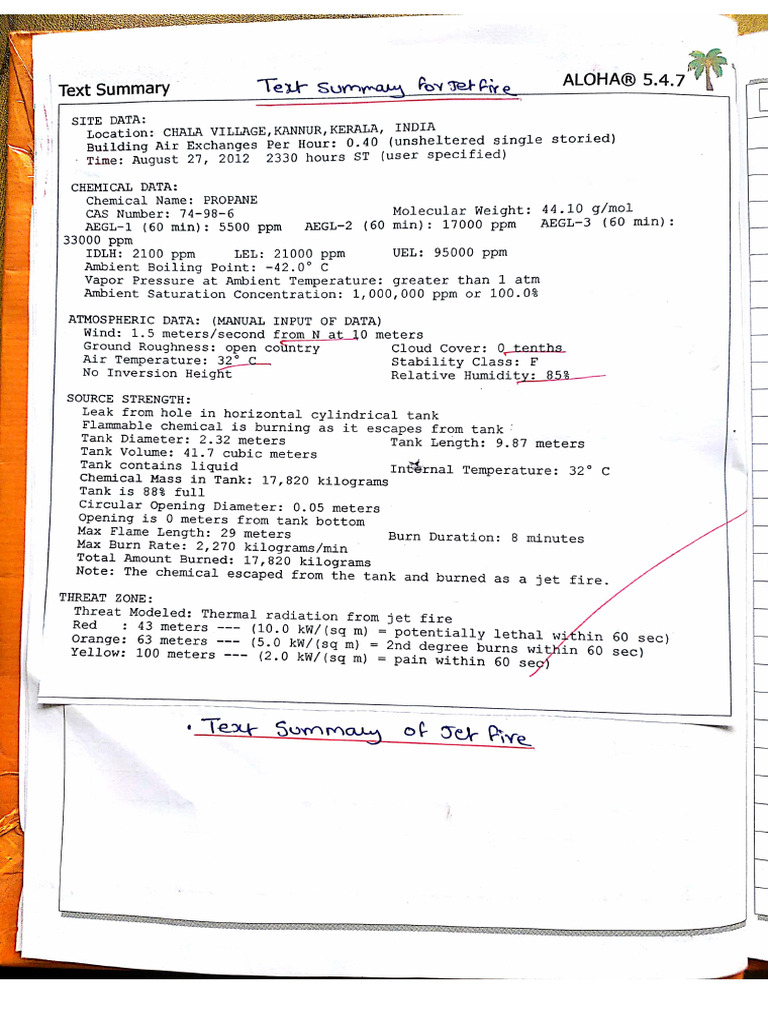 Text Summary Text Summary for Jet fire ALOHA® 5.4.7
SITE DATA:
Location: CHALA VILLAGE,KANNUR,KERALA, INDIA
Building Air Exchanges Per Hour: 0.40 (unsheltered single storied)
Time: August 27, 2012 2330 hours ST (user specified)
CHEMICAL DATA:
Chemical Name: PROPANE
CAS Number: 74-98-6 Molecular Weight: 44.10 g/mol
AEGL-1 (60 min): 5500 ppm AEGL-2 (60 min): 17000 ppm AEGL-3 (60 min):
33000 ppm
IDLH: 2100 ppm LEL: 21000 ppm UEL: 95000 ppm
Ambient Boiling Point: -42.0° C
Vapor Pressure at Ambient Temperature: greater than 1 atm
Ambient Saturation Concentration: 1,000,000 ppm or 100.0%
ATMOSPHERIC DATA: (MANUAL INPUT OF DATA)
Wind: 1.5 meters/second from N at 10 meters
Ground Roughness: open country Cloud Cover: 0 tenths
Air Temperature: 32° C Stability Class: F
No Inversion Height Relative Humidity: 85%
SOURCE STRENGTH:
Leak from hole in horizontal cylindrical tank
Flammable chemical is burning as it escapes from tank
Tank Diameter: 2.32 meters Tank Length: 9.87 meters
Tank Volume: 41.7 cubic meters
Tank contains liquid Internal Temperature: 32° C
Chemical Mass in Tank: 17,820 kilograms
Tank is 88% full
Circular Opening Diameter: 0.05 meters
Opening is 0 meters from tank bottom
Max Flame Length: 29 meters Burn Duration: 8 minutes
Max Burn Rate: 2,270 kilograms/min
Total Amount Burned: 17,820 kilograms
Note: The chemical escaped from the tank and burned as a jet fire.
THREAT ZONE:
Threat Modeled: Thermal radiation from jet fire
Red : 43 meters --- (10.0 kW/(sq m) = potentially lethal within 60 sec)
Orange: 63 meters --- (5.0 kW/(sq m) = 2nd degree burns within 60 sec)
Yellow: 100 meters --- (2.0 kW/(sq m) = pain within 60 sec)
• Text Summary of Jet fire